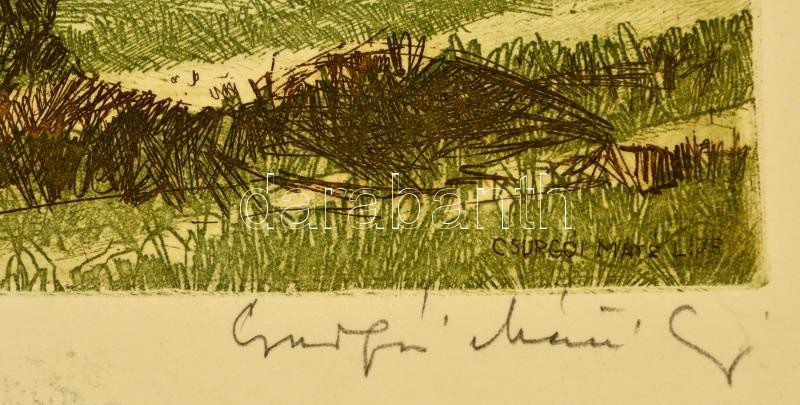 darabanth
CSURGÓI MÁTÉ L. 78
Csurgói Máté L